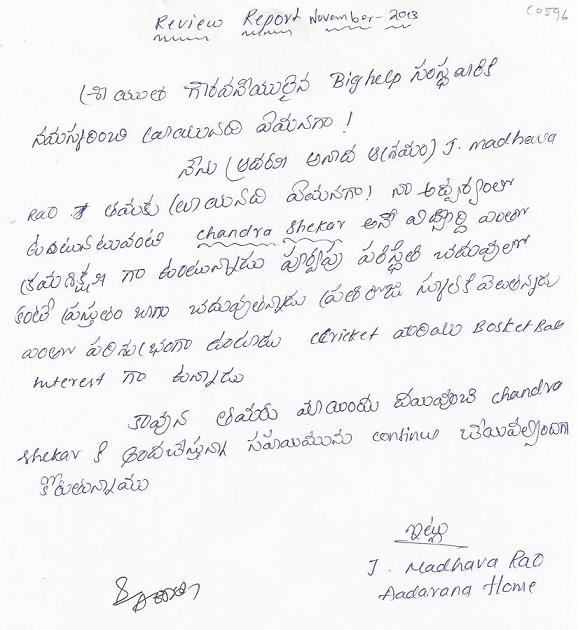 Review Report November-2013
C0596
శ్రీ యుత గౌరవనీయులైన Bighelp సంస్థ వారికి
నమస్కరించి వ్రాయునది ఏమనగా!
నేను (ఆదరణ అనాద ఆశ్రమం) J. madhava
Rao తమకు వ్రాయునది ఏమనగా! నా ఆధ్వర్యంలో
ఉంటున్నటువంటి chandra shekar అనే విద్యార్థి
క్రమశిక్షణ గా ఉంటున్నాడు పూర్వపు పరిస్థితి చదువులో
కంటే ప్రస్తుతం బాగా చదువుతున్నాడు ప్రతిరోజు స్కూల్‌కి వెలుతున్నడు
పరిశుభ్రంగా ఉంటాడు cricket మరియు BosketBall
Interest గా ఉన్నాడు
కావున తమరు మాయందు దయవుంచి chandra
shekar కి అందచేస్తున్న సహాయమును continue చేయవల్సిందిగా
కోరుతున్నాము
ఇట్లు
J. Madhava Rao
Aadarana Home